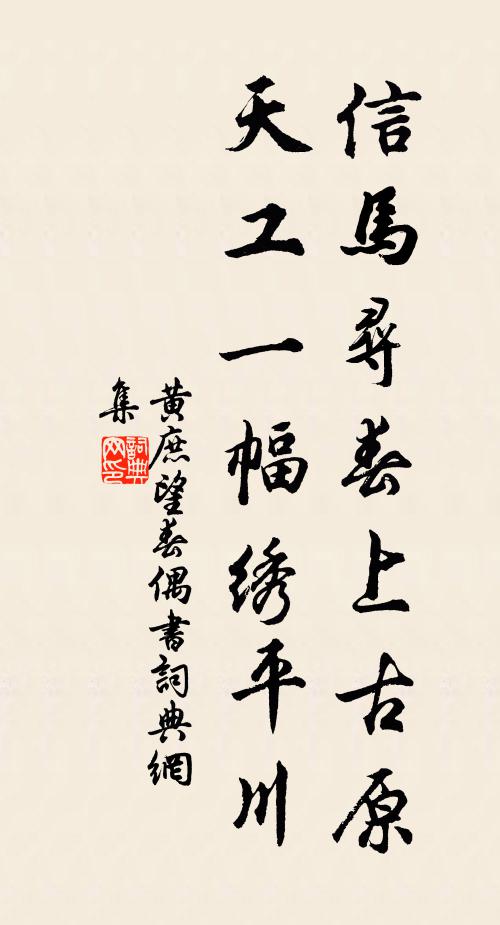 信馬尋春上古原
天工一幅绣平川
黃庶望春偶書詞典網
集
詞典网印